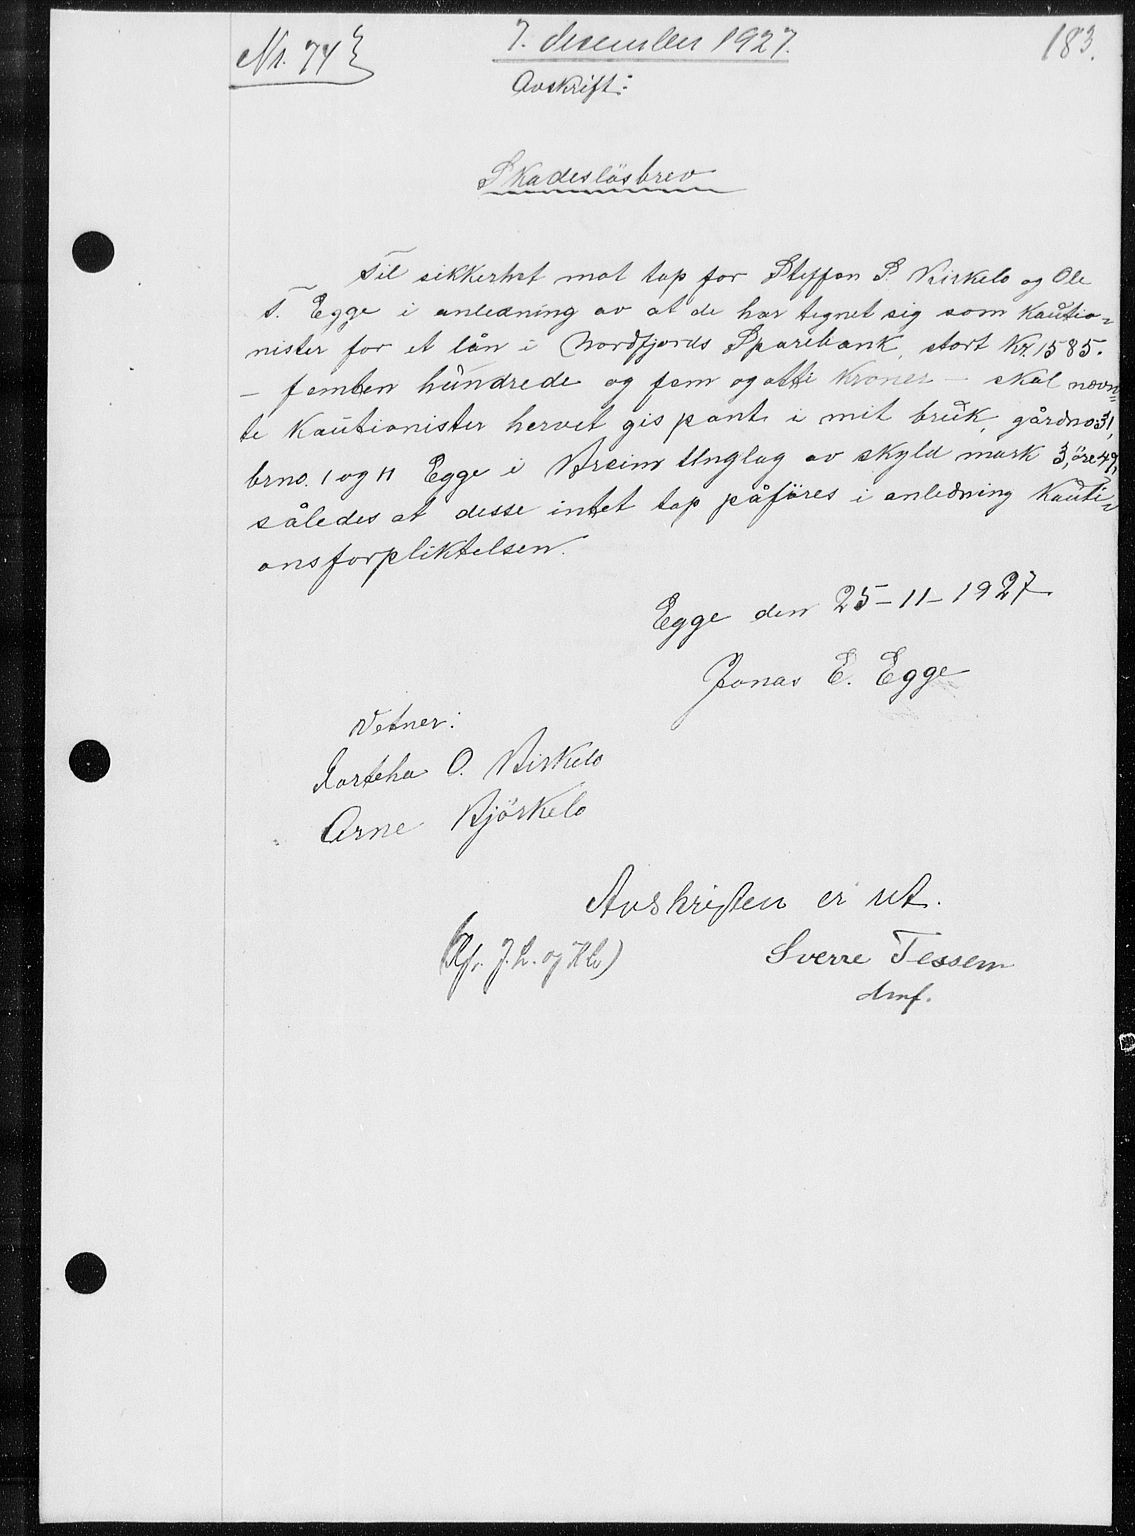 No. 74
7. desember 1927.
183.
Avskrift:
Skadeslösbrev
Til sikkerhet mot tap for Steffen S. Birkelo og Ole
T. Egge i anledning av at de har tegnet sig som kautio-
nister for et lån i Nordfjords Sparebank, stort kr. 1585.
- femten hundrede og fem og otti kroner - skal nævn-
te kautionister herved gis pant i mit bruk, gårdno 31,
brno. 1 og 11 Egge i Breim tinglag av skyld mark 3, öre 49,
således at desse intet tap påföres i anledning kauti-
onsforpliktelsen.
Egge den 25-11-1927
Jonas E. Egge
Vetner:
Dorthea O. Birkelo
Arne Björkelo
Avskriften er ret.
Sverre Tessem
dmf.